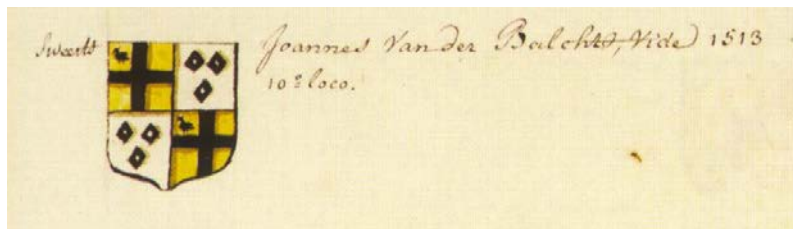 Sweerts Joannes Van der Balcht, Vide 1513
10º loco.